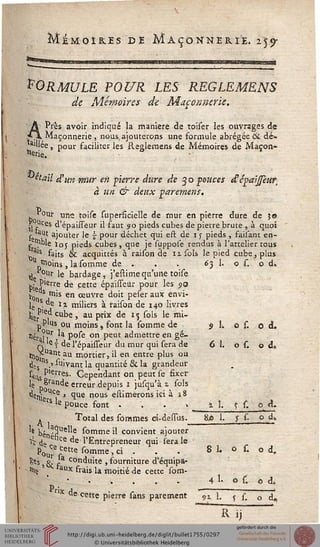 MÉMOIRES DE MAÇONNERIE. 259
FORMULE POUR LES REGLEMENS
de Mémoires de Maçonnerie.
APrès avoir indiqué la maniere de toiser les ouvrages de
Maçonnerie, nous ajouterons une formule abrégée & dé-
taillée, pour faciliter les Reglemens de Mémoires de Maçon-
nerie.
Détail d'un mur en pierre dure de 30 pouces d'épaisseur,
à un & deux paremens.
Pour une toise superficielle de mur en pierre dure de 30
pouces d'épaisseur il faut 90 pieds cubes de pierre brute, à quoi
il faut ajouter le 1/6 pour déchet qui est de 15 pieds, faisant en-
semble 105 pieds cubes, que je suppose rendus à l'attelier tous
frais faits & acquittés à raison de 12 sols le pied cube, plus
ou moins, la somme de . . . 63 l. 0 s. 0 d.
Pour le bardage, j'estime qu'une toise
de pierre de cette épaisseur pour les 90
pieds mis en œuvre doit peser aux envi-
rons de 12 miliers à raison de 140 livres
le pied cube, au prix de 15 sols le mi-
lier plus ou moins, font la somme de 9 l. 0 s. 0 d.
Pour la pose on peut admettre en gé-
néral le 1/5 de l'épaisseur du mur qui sera de 6 l. 0 s. 0 d.
Quant au mortier, il en entre plus ou
moins, suivant la quantité & la grandeur
des pierres. Cependant on peut se fixer
sans grande erreur depuis 1 jusqu'à 2 sols
le pouce, que nous estimerons ici à 18
deniers le pouce font . . . . 2 l. 5 s. 0 d.
Total des sommes ci-dessus. 80 l. 5 s. 0 d.
A laquelle somme il convient ajouter
le bénéfice de l'Entrepreneur qui sera le
de cette somme, ci . . . 8 l. 0 s. 0 d.
Pour sa conduite, fourniture d'équipa-
ges, & faux frais la moitié de cette som-
me . . . . 4 l. 0 s. 0 d.
Prix de cette pierre sans parement 92 l. 5 s. 0 d.
R ij
UNIVERSITÄTS-
BIBLIOTHEK
HEIDELBERG
http://digi.ub.uni-heidelberg.de/diglit/bullet1755/0297
© Universitätsbibliothek Heidelberg
gefördert durch die